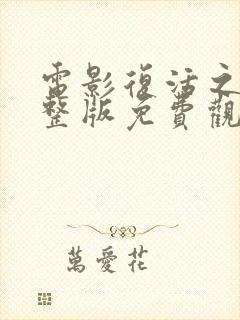 電影復活之
整版免費觀
萬愛花